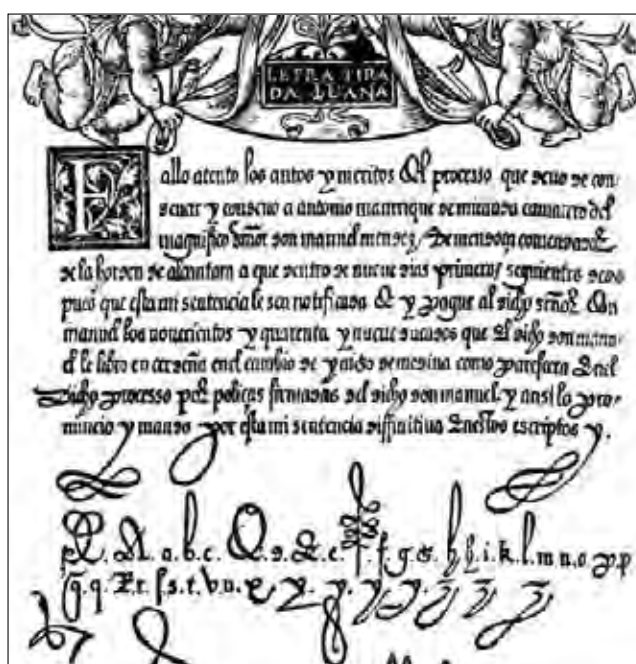 LETRA TIRA
DA LLANA
Fallo atento los autos y meritos del processo que deuo de con
denar y condeno a antonio manrrique de miranda camarero del
magnifico señor don manuel mendez de mendoça comendador
de la horden de alcantara a que dentro de nueue dias primeros seguientes des
pues que esta mi sentencia le sea notificada de y pague al dicho señor don
manuel los nouecientos y quarenta y nueue ducados que el dicho don manu
el le libro en cerdeña en el cambio de de medina como en el
dicho processo por poliças firmadas del dicho don manuel y ansi lo pro
nuncio y mando por esta mi sentencia diffinitiua en estos escriptos y.
A. a. b. c. d. e. f. f. g. h. h. i. k. l. m n. o p p
q. q r. f. s. t. v. u. y. y. y. z z z